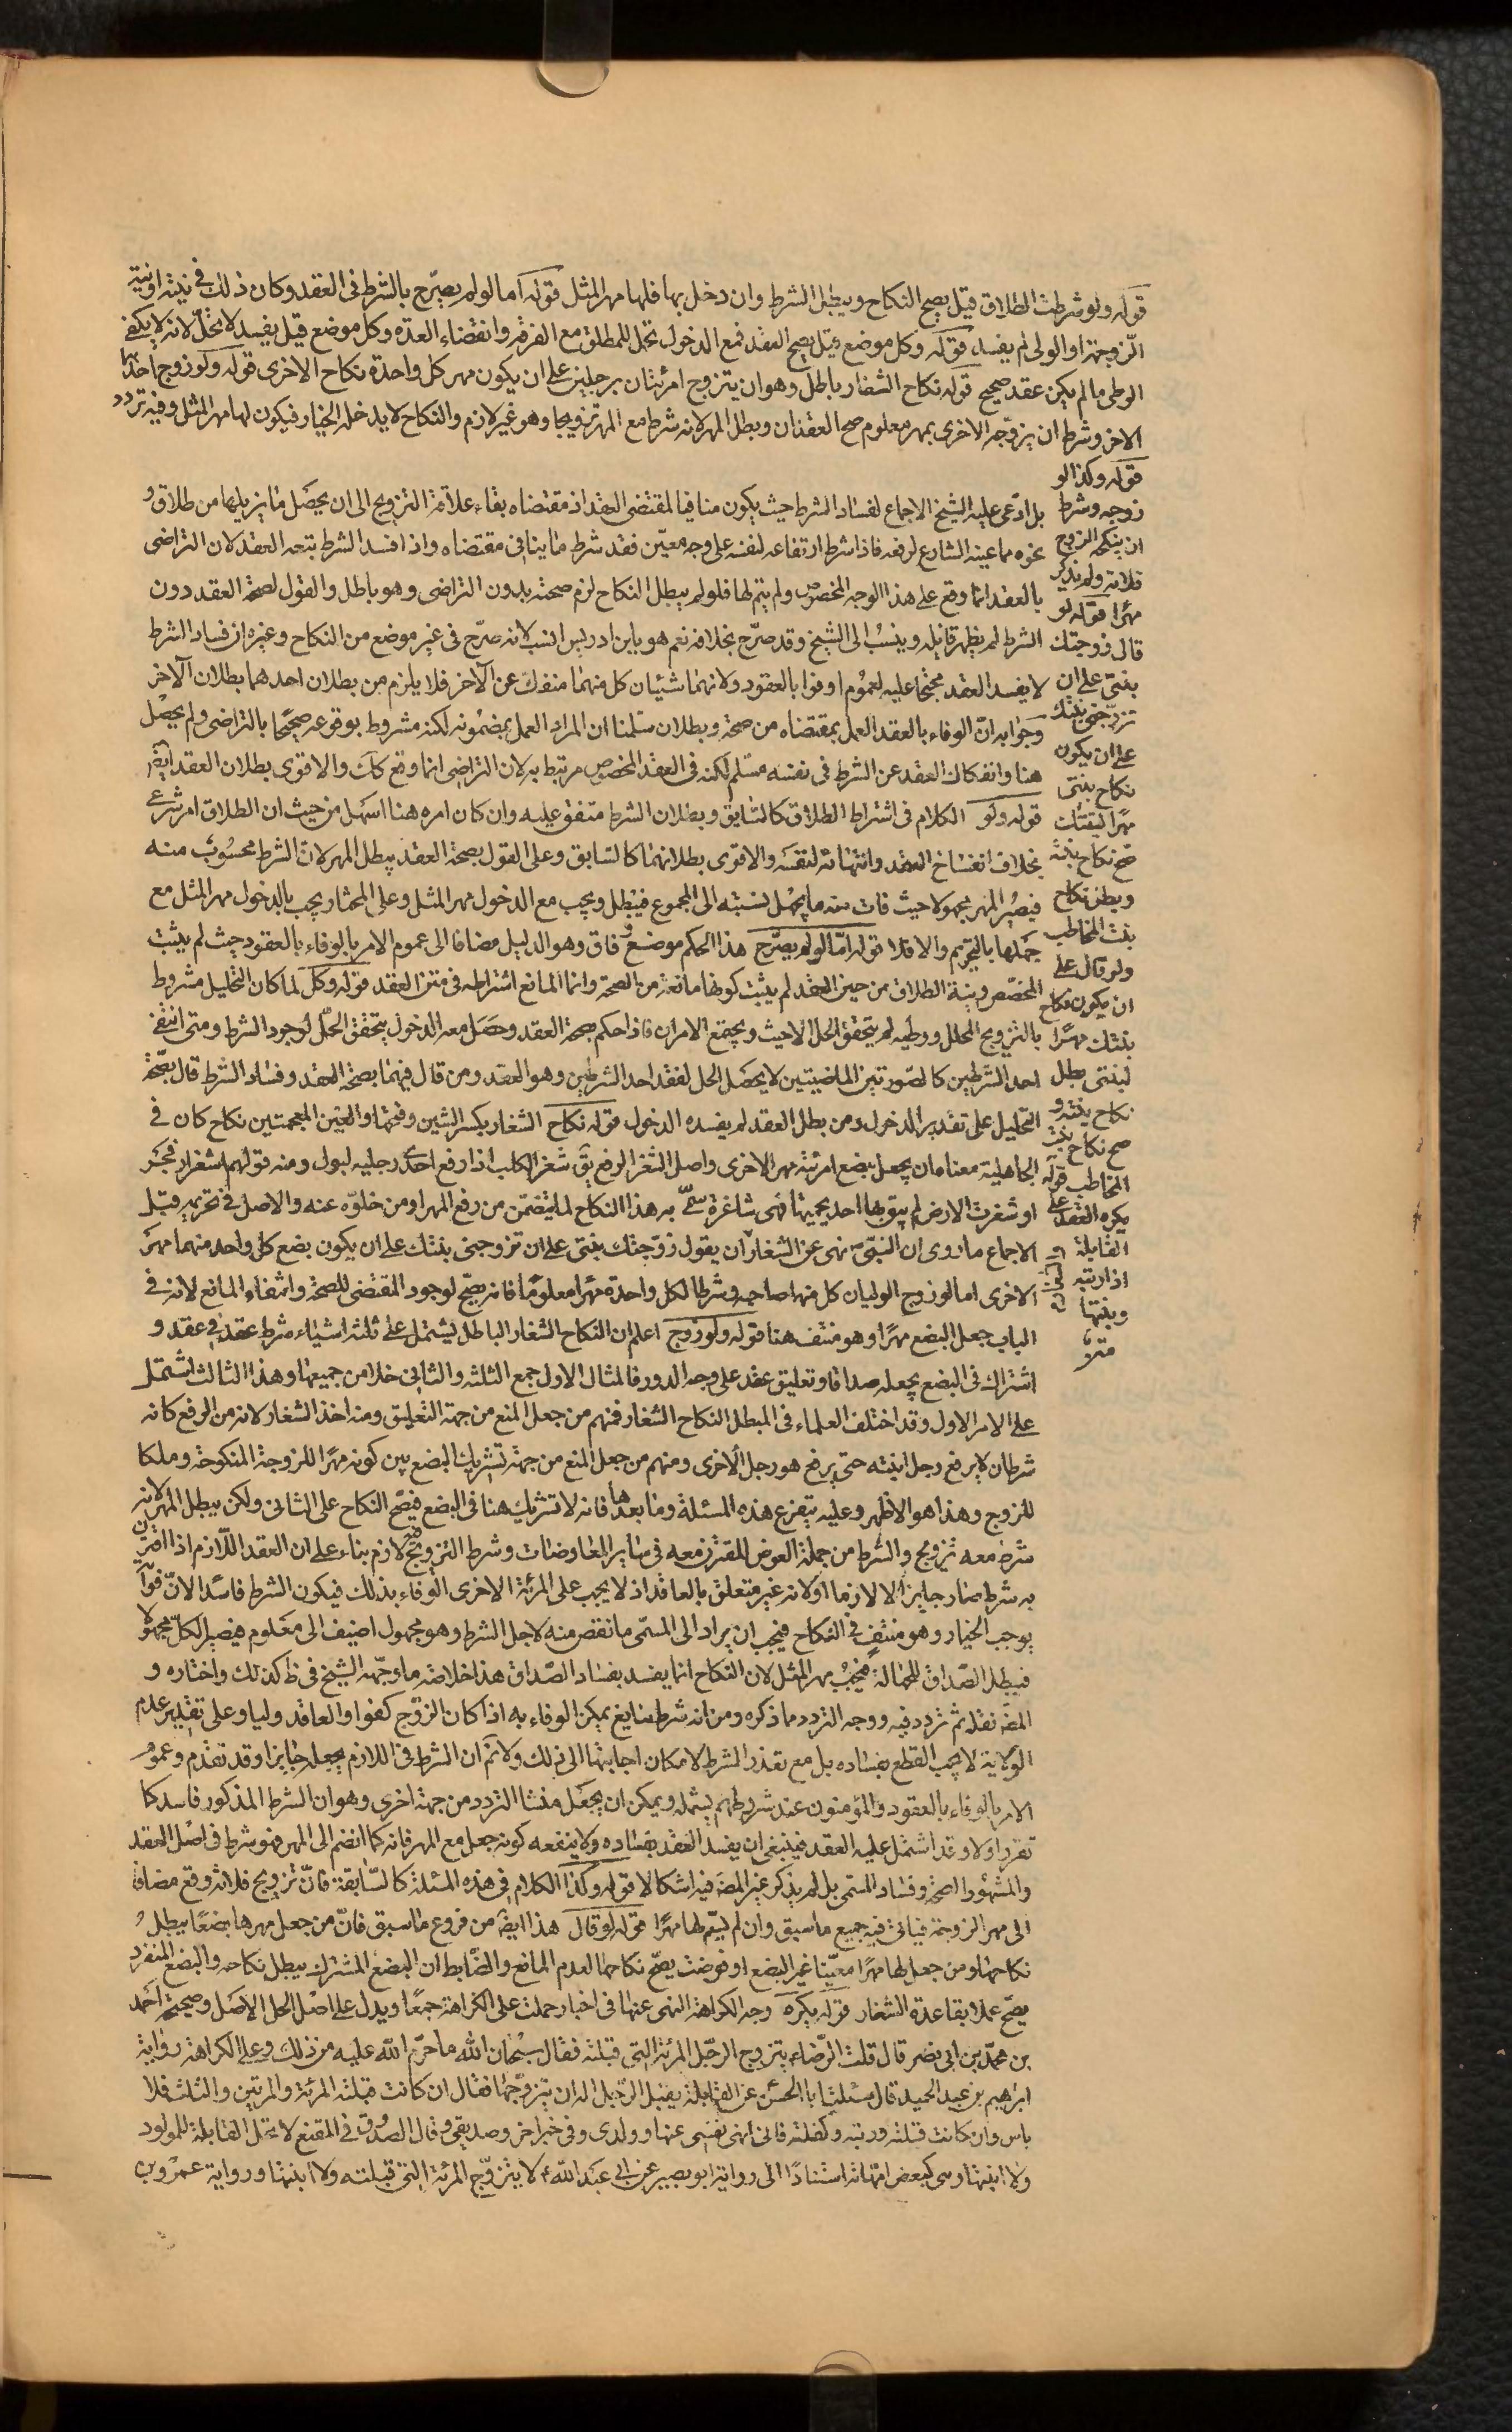 قوله ولو شرطت الطلاق قيل يصح النكاح ويبطل الشرط وان دخل بها فلها مهر المثل قوله اما لو لم يصرّح بالشرط فى العقد وكان ذلك فى نيته او نية
الزوجة او الولى لم يفسد قوله وكل موضع قيل يصح العقد فمع الدخول تحل للمطلق مع الفرقة وانقضاء العدة وكل موضع قيل يفسد لا تحلّ لانه لا يكفى
الوطى ما لم يكن عقد صحيح قوله نكاح الشغار باطل وهو ان يتزوج امرئتان برجلين على ان يكون مهر كل واحدة نكاح الاخرى قوله ولو زوج احدهما
الاخر وشرط ان يزوّجه الاخرى بمهر معلوم صح العقدان وبطل المهر لانه شرط مع المهر تزويجا وهو غير لازم والنكاح لا يدخله الخيار فيكون لها مهر المثل وفيه تردد
قوله وكذا لو
زوجه وشرط
ان ينكحه الزوج
فلانة ولم يذكر
مهرا قوله لو
قال زوجتك
بنتى على ان
تزوّجنى بنتك
على ان يكون
نكاح بنتى
مهرا لبنتك
صح نكاح بنته
وبطل نكاح
بنت المخاطب
ولو قال على
ان يكون نكاح
بنتك مهرا
لبنتى بطل
نكاح بنته و
صح نكاح بنت
المخاطب قوله
يكره العقد على
القابلة
اذا ربته
وبنتها
بل ادّعى عليه الشيخ الاجماع لفساد الشرط حيث يكون منافيا لمقتضى العقد اذ مقتضاه بقاء علاقة التزويج الى ان يحصل ما يزيلها من طلاق و
نحوه مما عينه الشارع لرفعه فاذا شرط ارتفاعه لنفسه على وجه معيّن فقد شرط ما ينافى مقتضاه واذا فسد الشرط بتعه العقد لان التراضى
بالعقد انما وقع على هذا الوجه المخصوص ولم يتم لها فلو لم يبطل النكاح لزم صحته بدون التراضى وهو باطل والقول لصحة العقد دون
الشرط لم يظهر قايله وينسب الى الشيخ وقد صرّح بخلافه نعم هو بابن ادريس انسب لانه صرّح فى غير موضع من النكاح وغيره ان فساد الشرط
لا يفسد العقد محتجا عليه بعموم اوفوا بالعقود ولانهما شيئان كل منهما منفك عن الاخر فلا يلزم من بطلان احدهما بطلان الاخر
وجوابه انّ الوفاء بالعقد العمل بمقتضاه من صحة وبطلان سلمنا ان المراد العمل بمضمونه لكنه مشروط بوقوعه صحيحا بالتراضى ولم يحصل
هنا وانفكاك العقد عن الشرط فى نفسه مسلم لكنه فى العقد المخصوص مرتبط به لان التراضى انما وقع كك والاقوى بطلان العقد ايضا
قوله ولو الكلام فى اشتراط الطلاق كالسابق وبطلان الشرط متفق عليه وان كان امره هنا اسهل من حيث ان الطلاق امر شرعى
بخلاف انفساخ العقد وانتهائه لنفسه والاقوى بطلانهما كالسابق وعلى القول بصحة العقد يبطل المهر لان الشرط محسوب منه
فيصير المهر مجهولا حيث فات منه ما يجهل نسبته الى المجموع فيبطل ويجب مع الدخول مهر المثل وعلى المختار ويجب بالدخول مهر المثل مع
جهلها بالتحريم والا فلا قوله امّا لو لم يصرّح هذا الحكم موضع وفاق وهو الدليل مضافا الى عموم الامر بالوفاء بالعقود حيث لم يثبت
المخصّص ونية الطلاق من حين العقد لم يثبت كونها مانعة من الصحة وانما المانع اشتراطه فى متن العقد قوله وكل لما كان التحليل مشروط
بالتزويج المحلل ووطيه لم يتحقق الحل الا حيث ويجتمع الامران فاذا حكم بصحة العقد وحصل معه الدخول يتحقق الحلّ لوجود الشرط ومتى انتفى
احد الشرطين كالصورتين الماضيتين لا يحصل الحل لفقد احد الشرطين وهو العقد ومن قال فيهما بصحة العقد وفساد الشرط قال بصحّة
التحليل على تقدير الدخول ومن بطل العقد لم يفسده الدخول قوله نكاح الشغار بكسر الشين وفتحها والغين المعجمتين نكاح كان فى
الجاهلية معناه ان يجعل بضع امرئة مهر الاخرى واصل الشغر الرفع يق شغر الكلب اذا رفع احدى رجليه لبول ومنه قولهم اشغرا فجر
او شغرت الارض لم يبق بها احد يحميها فهى شاغرة سمّى به هذا النكاح لما يتضمّن من رفع المهر او من خلوّه عنه والاصل فى تحريمه قبل
الاجماع ما روى ان النبىّ نهى عن الشغار ان يقول زوّجتك بنتى على ان تزوجنى بنتك على ان يكون بضع كل واحد منهما مهر
الاخرى اما لو زوج الوليان كل منهما صاحبه وشرطا لكل واحدة مهرا معلوما فانه يصح لوجود المقتضى للصحة وانتفاء المانع لانه فى
الباب جعل البضع مهرا وهو منتف هنا قوله ولو زوج اعلم ان النكاح الشغار الباطل يشتمل على ثلثة اشياء شرط عقد فى عقد و
اشتراك فى البضع بجعله صداقا وتعليق عقد على وجه الدور فالمثال الاول جمع الثلثة والثانى خلا من جميعها وهذا الثالث اشتمل
على الامر الاول وقد اختلف العلماء فى المبطل النكاح الشغار فمنهم من جعل المنع من جهة التعليق ومنه اخذ الشغار لانه من الرفع كانه
شرط ان لا يرفع رجل ابنته حتى يرفع هو رجل الاخرى ومنهم من جعل المنع من جهة تشريك البضع بين كونه مهرا للزوجة المنكوحة وملكا
للزوج وهذا هو الاظهر وعليه يتفرع هذه المسئلة وما بعدها فانه لا تشريك هنا فى البضع فيصح النكاح على الثانى ولكن يبطل المهر لانه
شرط معه تزويج والشرط من جملة العوض المقترن معه فى ساير المعاوضات وشرط التزويج غير لازم بناء على ان العقد اللازم اذا اقترن
به شرط صار جايزا لا لازما او لانه غير متعلق بالعاقد اذ لا يجب على المرئة الاخرى الوفاء بذلك فيكون الشرط فاسدا لانّ فواته
يوجب الخيار وهو منتف فى النكاح فيجب ان يراد الى المسمّى ما نقص منه لاجل الشرط وهو مجهول اضيف الى معلوم فيصير الكل مجهولا
فيبطل الصّداق للجهالة فيجب مهر المثل لان النكاح انما يفسد بفساد الصّداق هذا خلاصة ما وجّهه الشيخ فى ط كذلك واختاره و
المص نقله ثم تردد فيه ووجه التردد ما ذكره ومن انه شرط سايغ يمكن الوفاء به اذا كان الزوج كفوا والعاقد وليا وعلى تقدير عدم
الولاية لا يجب القطع بفساده بل مع تعذر الشرط لامكان اجابتها الى ذلك ولا نم ان الشرط فى اللازم يجعله جايزا وقد تقدم وعموم
الامر بالوفاء بالعقود والمؤمنون عند شروطهم يشمله ويمكن ان يجعل منشا التردد من جهة اخرى وهو ان الشرط المذكور فاسد كما
تقرر اولا وقد اشتمل عليه العقد فينبغى ان يفسد العقد بفساده ولا ينفعه كونه جعل مع المهر فانه كما انضم الى المهر فهو شرط فى اصل العقد
والمشهور الصحة وفساد المسمى بل لم يذكر غير المص فيه اشكالا قوله وكذا الكلام فى هذه المسئلة كالسّابقة فانّ تزويج فلانة وقع مضافا
الى مهر الزوجة فياتى فيه جميع ما سبق وان لم يسمّ لها مهرا قوله لو قال هذا ايضا من فروع ما سبق فانّ من جعل مهرها بضعا يبطل
نكاحها ومن جعل لها مهرا معيّنا غير البضع او فوضت يصحّ نكاحها لعدم المانع والضابط ان البضع المشترك يبطل نكاحه والبضع المنفرد
يصحّ عملا بقاعدة الشغار قوله يكره وجه الكراهة النهى عنها فى اخبار حملت على الكراهة جمعا ويدل على اصل الحل الاصل وصحيحة احمد
بن محمّد بن ابى نصر قال قلت الرّضاء يتزوج الرجل المرئة التى قبلته فقال سبحان الله ما حرّم الله عليه من ذلك وعلى الكراهة رواية
ابراهيم بن عبد الحميد قال سئلت ابا الحسن عن القابلة يقبل الرّجل اله ان يتزوّجها فقال ان كانت قبلته المرئة والمرتين والثلث فلا
باس وان كانت قبلته وربته وكفلته فانى انهى نفسى عنها وولدى وفى خبر اخر وصديقى وقال الصدوق فى المقنع لا تحل القابلة للمولود
ولا ابنتها وهى كبعض امّهاته استنادا الى رواية ابو بصير عن ابى عبد الله ع لا يتزوّج المرئة التى قبلته ولا ابنتها ورواية عمرو بن